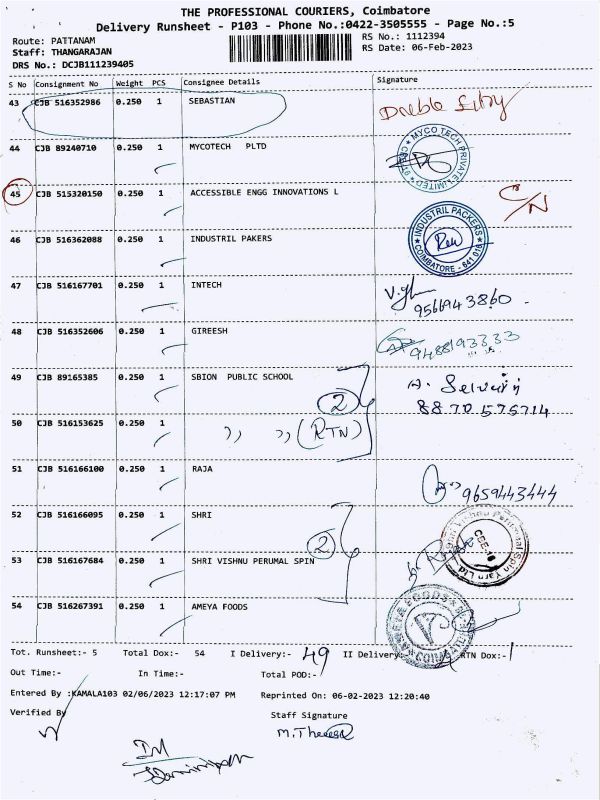 THE PROFESSIONAL COURIERS, Coimbatore
Delivery Runsheet - P103 - Phone No.:0422-3505555 - Page No.:5
Route: PATTANAM
RS No.: 1112394
Staff: THANGARAJAN
RS Date: 06-Feb-2023
DRS No.: DCJB111239405
S No Consignment No Weight PCS Consignee Details Signature
43 CJB 516352986 0.250 1 SEBASTIAN Double Entry
44 CJB 89240710 0.250 1 MYCOTECH PLTD
MYCO TECH PRIVATE LIMITED
45 CJB 515320150 0.250 1 ACCESSIBLE ENGG INNOVATIONS L C/N
46 CJB 516362088 0.250 1 INDUSTRIL PAKERS
INDUSTRIL PACKERS
COIMBATORE - 641 016
47 CJB 516167701 0.250 1 INTECH
9566943860
48 CJB 516352606 0.250 1 GIREESH
9488193333
49 CJB 89165385 0.250 1 SBION PUBLIC SCHOOL
2
8870575714
50 CJB 516153625 0.250 1 ,, ,, (RTN)
51 CJB 516166100 0.250 1 RAJA 9659443444
52 CJB 516166095 0.250 1 SHRI
2
53 CJB 516167684 0.250 1 SHRI VISHNU PERUMAL SPIN
Shri Vishnu Perumal Spin Yarn Ltd
54 CJB 516267391 0.250 1 AMEYA FOODS
AMEYA FOODS
Tot. Runsheet:- 5 Total Dox:- 54 I Delivery:- 49 II Delivery:- RTN Dox:- 1
Out Time:- In Time:- Total POD:-
Entered By :KAMALA103 02/06/2023 12:17:07 PM Reprinted On: 06-02-2023 12:20:40
Verified By Staff Signature
M.Theresa